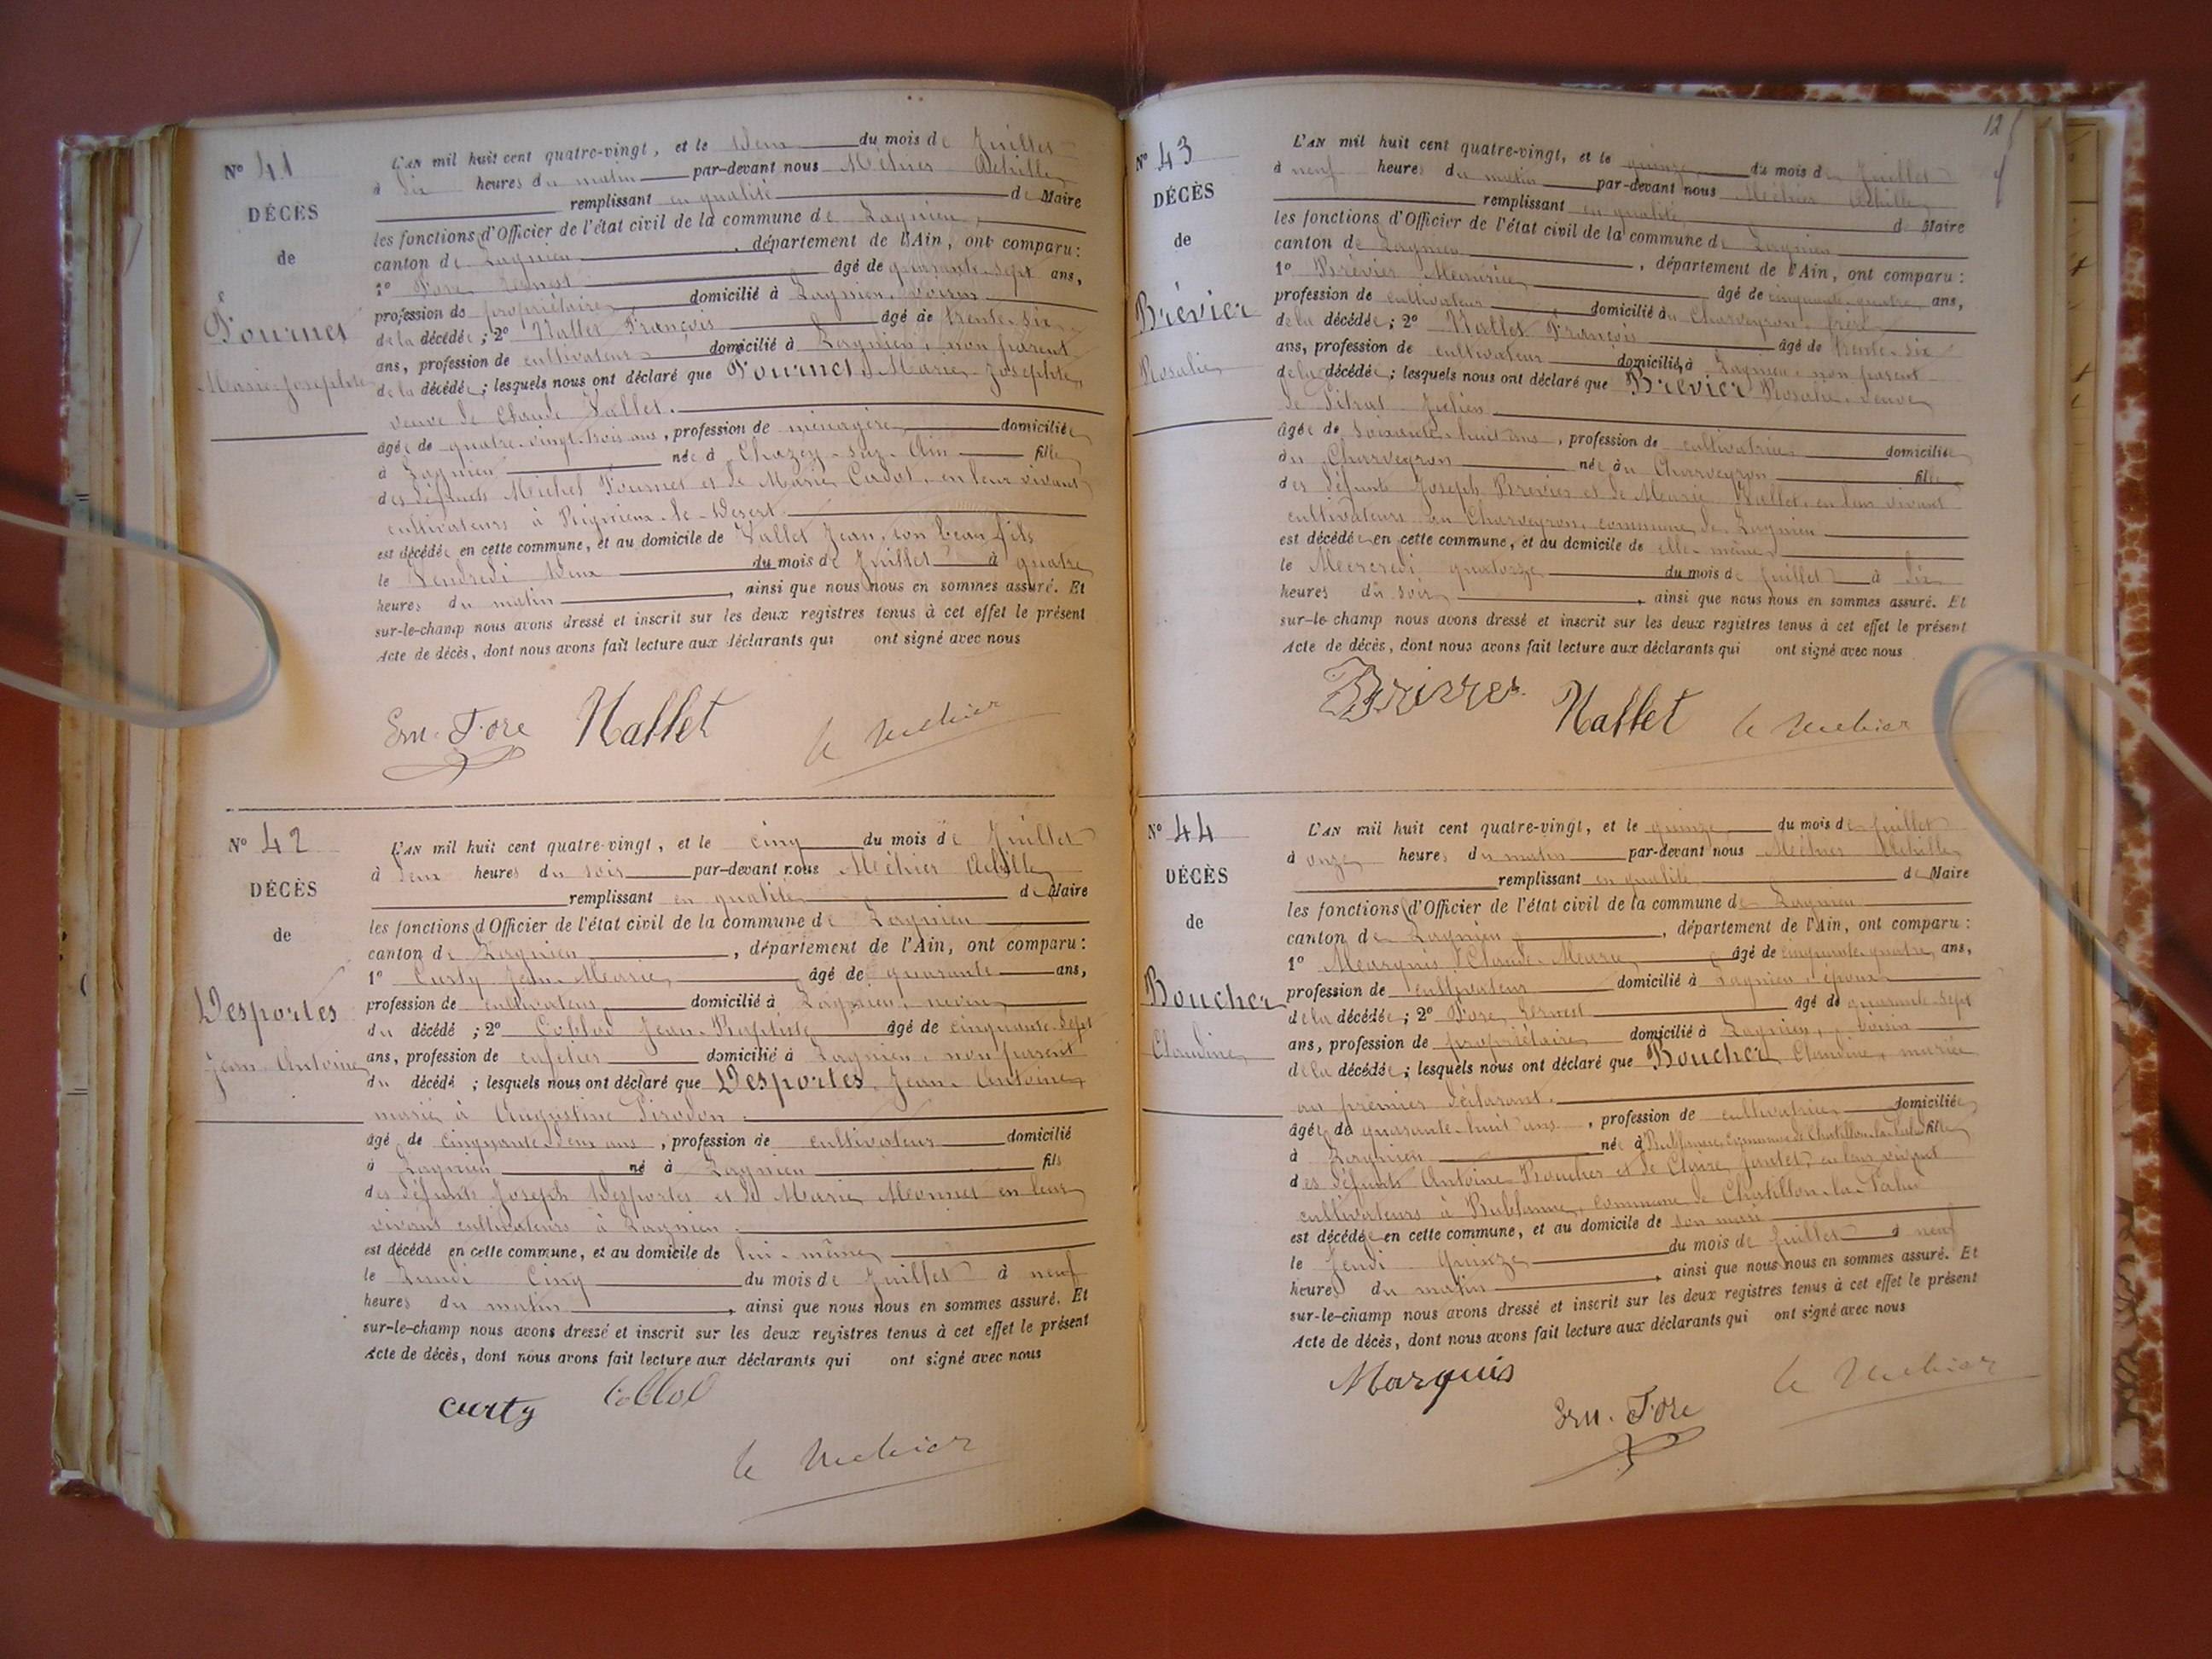 N° 41
DÉCÈS
de
Fournet
Marie Josephte
L'AN mil huit cent quatre-vingt, et le Deux du mois de Juillet
à six heures du matin par-devant nous Méhier Achille
remplissant en qualité de Maire
les fonctions d'Officier de l'état civil de la commune de Lagnieu
canton de Lagnieu, département de l'Ain, ont comparu:
1° Fore Ernest âgé de quarante-sept ans,
profession de propriétaire domicilié à Lagnieu, voisin
de la décédée; 2° Nallet François âgé de trente-six
ans, profession de cultivateur domicilié à Lagnieu, non parent
de la décédée; lesquels nous ont déclaré que Fournet, Marie Josephte,
veuve de Claude Vallet.
âgée de quatre-vingt-trois ans, profession de ménagère domiciliée
à Lagnieu née à Chazey-sur-Ain fille
des défunts Michel Fournet et de Marie Cadot, en leur vivant
cultivateurs à Rignieux-le-Désert.
est décédée en cette commune, et au domicile de Vallet Jean, son beau fils
le Vendredi Deux du mois de Juillet à quatre
heures du matin, ainsi que nous nous en sommes assuré. Et
sur-le-champ nous avons dressé et inscrit sur les deux registres tenus à cet effet le présent
Acte de décès, dont nous avons fait lecture aux déclarants qui ont signé avec nous
Ern. Fore Nallet A Mehier
N° 42
DÉCÈS
de
Desportes
Jean Antoine
L'AN mil huit cent quatre-vingt, et le cinq du mois de Juillet
à deux heures du soir par-devant nous Méhier Achille
remplissant en qualité de Maire
les fonctions d'Officier de l'état civil de la commune de Lagnieu
canton de Lagnieu, département de l'Ain, ont comparu:
1° Curty Jean-Marie âgé de quarante ans,
profession de cultivateur domicilié à Lagnieu, neveu
du décédé; 2° Coblod Jean-Baptiste âgé de cinquante-sept
ans, profession de cafetier domicilié à Lagnieu, non parent
du décédé; lesquels nous ont déclaré que Desportes, Jean-Antoine,
marié à Augustine Pirodon.
âgé de cinquante-deux ans, profession de cultivateur domicilié
à Lagnieu né à Lagnieu fils
des défunts Joseph Desportes et de Marie Monnet en leur
vivant cultivateurs à Lagnieu.
est décédé en cette commune, et au domicile de lui-même
le Lundi Cinq du mois de Juillet à neuf
heures du matin, ainsi que nous nous en sommes assuré. Et
sur-le-champ nous avons dressé et inscrit sur les deux registres tenus à cet effet le présent
Acte de décès, dont nous avons fait lecture aux déclarants qui ont signé avec nous
curty Coblod
A Mehier
12
N° 43
DÉCÈS
de
Brévier
Rosalie
L'AN mil huit cent quatre-vingt, et le quinze du mois de Juillet
à neuf heures du matin par-devant nous Méhier Achille
remplissant en qualité de Maire
les fonctions d'Officier de l'état civil de la commune de Lagnieu
canton de Lagnieu, département de l'Ain, ont comparu:
1° Brévier Maurice âgé de cinquante-quatre ans,
profession de cultivateur domicilié au Charveyron, frère
de la décédée; 2° Nallet François âgé de trente-six
ans, profession de cultivateur domicilié à Lagnieu, non parent
de la décédée; lesquels nous ont déclaré que Brévier Rosalie, veuve
de Pitrat Julien
âgée de soixante-huit ans, profession de cultivatrice domiciliée
au Charveyron née au Charveyron fille
des défunts Joseph Brévier et de Marie Vallet, en leur vivant
cultivateurs au Charveyron, commune de Lagnieu
est décédée en cette commune, et au domicile de elle-même
le Mercredi quatorze du mois de Juillet à six
heures du soir, ainsi que nous nous en sommes assuré. Et
sur-le-champ nous avons dressé et inscrit sur les deux registres tenus à cet effet le présent
Acte de décès, dont nous avons fait lecture aux déclarants qui ont signé avec nous
Nallet A Mehier
N° 44
DÉCÈS
de
Boucher
Claudine
L'AN mil huit cent quatre-vingt, et le quinze du mois de Juillet
à onze heures du matin par-devant nous Méhier Achille
remplissant en qualité de Maire
les fonctions d'Officier de l'état civil de la commune de Lagnieu
canton de Lagnieu, département de l'Ain, ont comparu:
1° Marquis Claude-Marie âgé de cinquante-quatre ans,
profession de cultivateur domicilié à Lagnieu, époux
de la décédée; 2° Fore Ernest âgé de quarante-sept
ans, profession de propriétaire domicilié à Lagnieu, voisin
de la décédée; lesquels nous ont déclaré que Boucher Claudine, mariée
au premier déclarant.
âgée de quarante-huit ans, profession de cultivatrice domiciliée
à Lagnieu née à Bublanne, commune de Chatillon-la-Palud fille
des défunts Antoine Boucher et de Claire Jantet, en leur vivant
cultivateurs à Bublanne, commune de Chatillon-la-Palud
est décédée en cette commune, et au domicile de son mari
le Jeudi Quinze du mois de Juillet à neuf
heures du matin, ainsi que nous nous en sommes assuré. Et
sur-le-champ nous avons dressé et inscrit sur les deux registres tenus à cet effet le présent
Acte de décès, dont nous avons fait lecture aux déclarants qui ont signé avec nous
Marquis
Ern. Fore
A Mehier